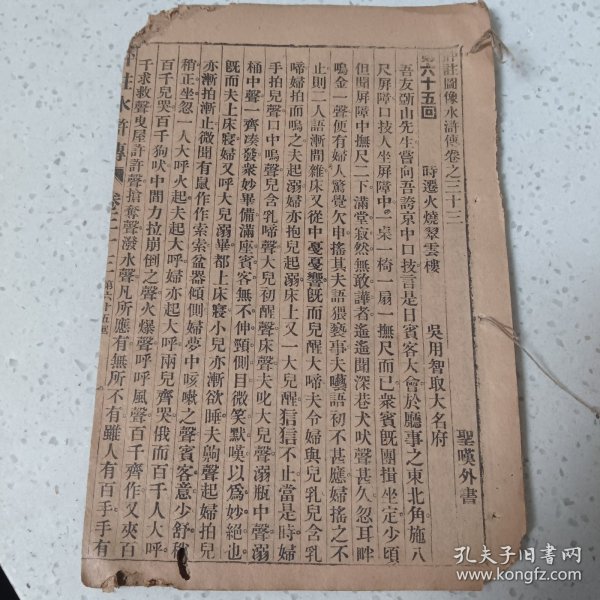 評註圖像水滸傳卷之三十三
聖嘆外書
第六十五回
時遷火燒翠雲樓
吳用智取大名府
吾友斲山先生嘗向吾誇京中口技言是日賓客大會於廳事之東北角施八
尺屏障口技人坐屏障中一桌一椅一扇一撫尺而已衆賓旣團揖坐定少頃
但聞屏障中撫尺二下滿堂寂然無敢譁者遙遙聞深巷犬吠聲甚久忽耳畔
鳴金一聲便有婦人驚覺欠申搖其夫語猥褻事夫囈語初不甚應婦搖之不
止則二人語漸間雜床又從中戞戞響旣而兒醒大啼夫令婦與兒乳兒含乳
啼婦拍而嗚之夫起溺婦亦抱兒起溺床上又一大兒醒狺狺不止當是時婦
手拍兒聲口中嗚聲兒含乳啼聲大兒初醒聲床聲夫叱大兒聲溺瓶中聲溺
桶中聲一齊凑發衆妙畢備滿座賓客無不伸頸側目微笑默嘆以爲妙絕也
旣而夫上床寢婦又呼大兒溺畢都上床寢小兒亦漸欲睡夫齁聲起婦拍兒
亦漸拍漸止微聞有鼠作作索索盆器傾側婦夢中咳嗽之聲賓客意少舒稍
稍正坐忽一人大呼火起夫起大呼婦亦起大呼兩兒齊哭俄而百千人大呼
百千兒哭百千狗吠中間力拉崩倒之聲火爆聲呼呼風聲百千齊作又夾百
千求救聲曳屋許許聲搶奪聲潑水聲凡所應有無所不有雖人有百手手有
評註水滸傳
第六十五回
孔夫子旧书网
www.kongfz.com